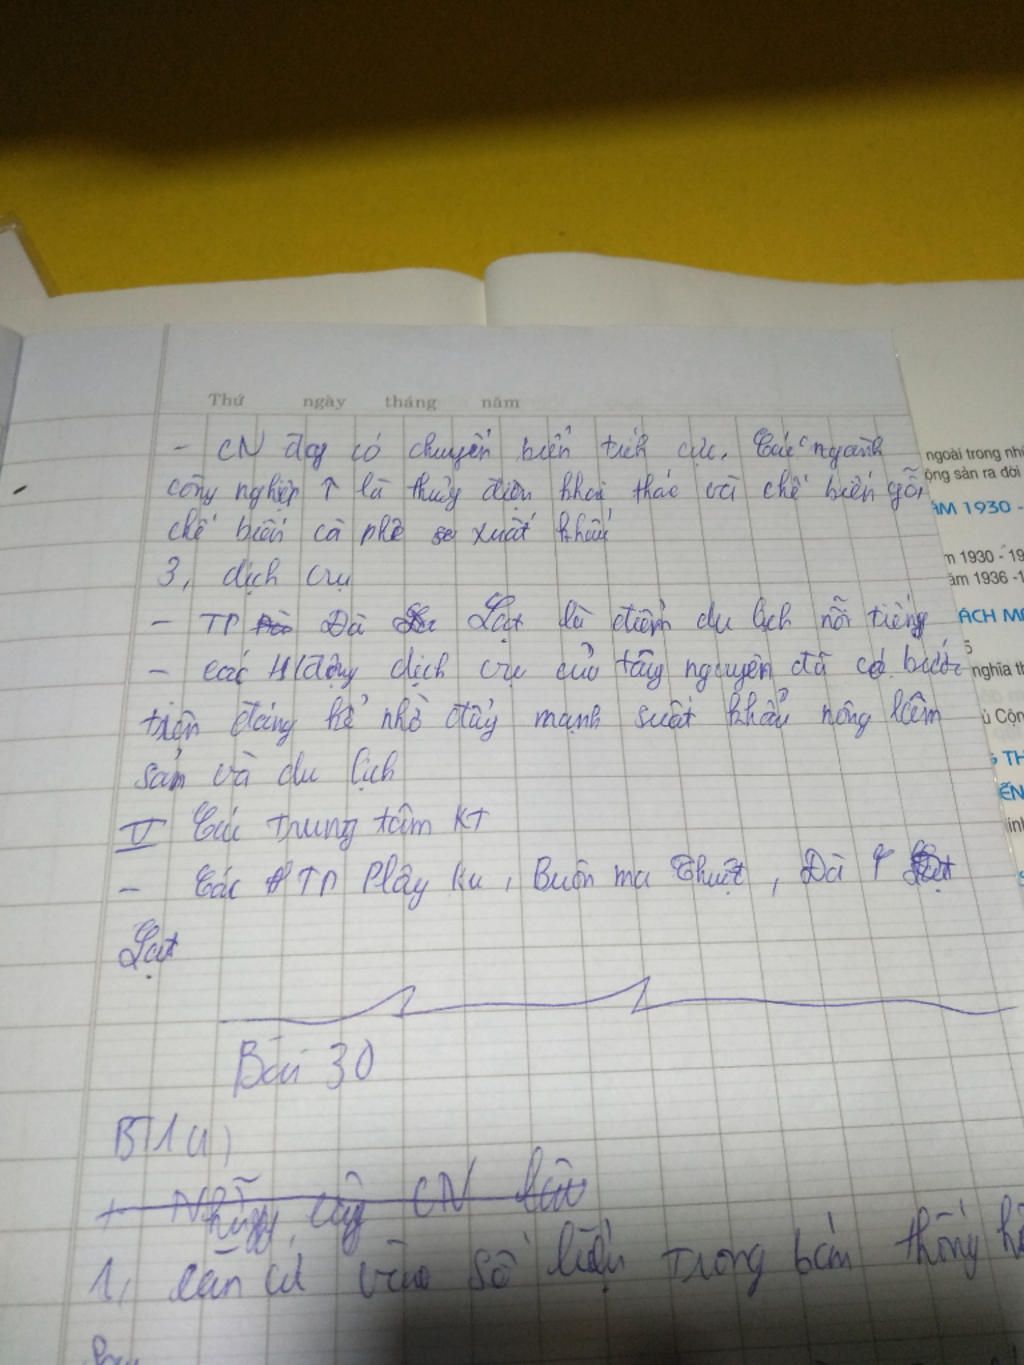 Thứ ngày tháng năm
- CN đag có chuyển biến tích cực, Các ngành
công nghiệp ↑ là thuỷ điện khai thác và chế biến gỗ,
chế biến cà phê xuất khẩu
3, dịch vụ
- TP Đà Lạt là điểm du lịch nổi tiếng
- các H/động dịch vụ của tây nguyên đã có bước
tiến đáng kể nhờ đẩy mạnh suất khẩu nông lâm
sản và du lịch
V Các trung tâm KT
- Các TP Plây ku, Buôn ma Thuột, Đà
Lạt
Bài 30
BT1 a)
+ Những cây CN lâu
1, căn cứ vào số liệu trong bản thống
ngoài trong nh
ộng sản ra đời
ĂM 1930 -
m 1930 - 19
ăm 1936 - 1
ÁCH M
5
nghĩa th
ủ Cộn
G TH
ẾN
inh